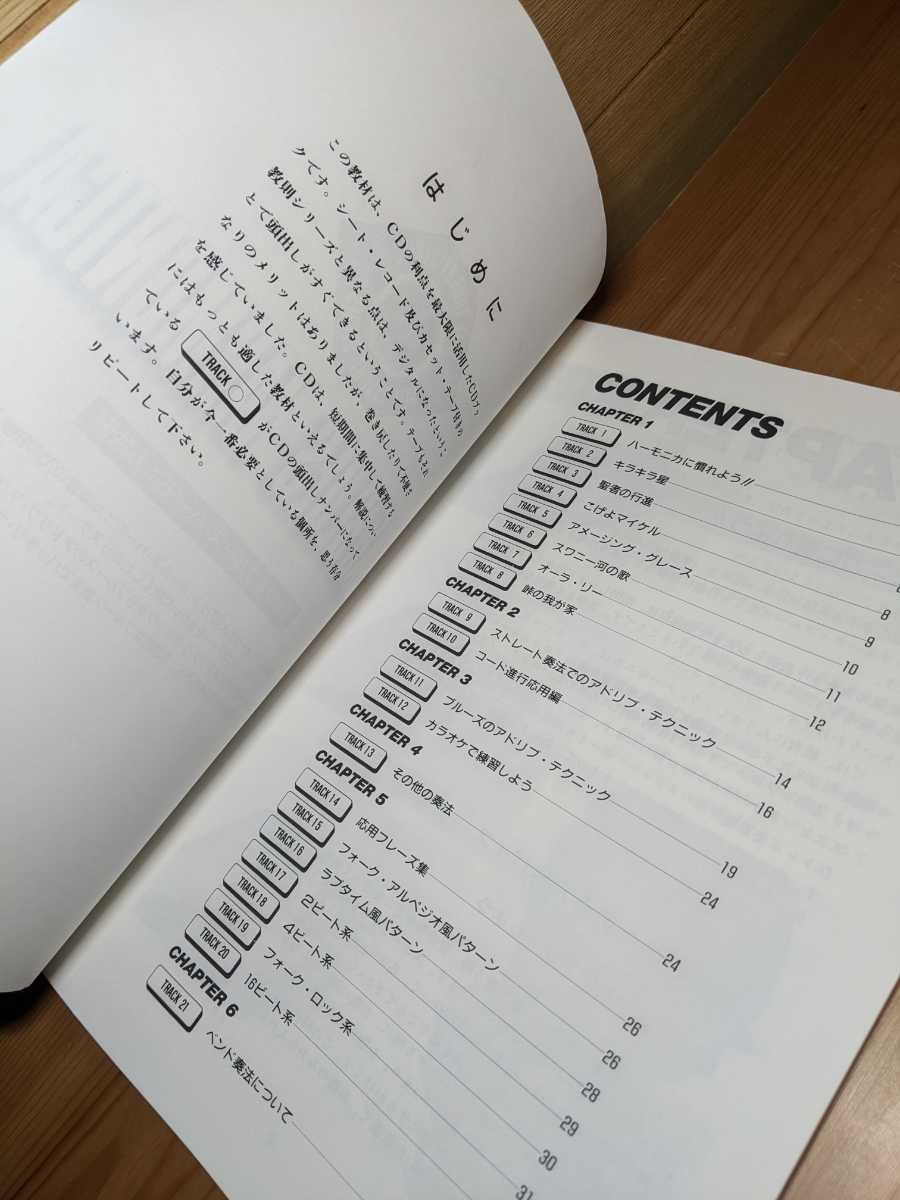 はじめに
この教材は、CDの利点を最大限に活用したCDブッ
クです。シート・レコード及びカセット・テープ付きの
教則シリーズと異なる点は、デジタルになったというこ
とで頭出しがすぐできるということです。テープもそれ
なりのメリットはありましたが、巻き戻したりで不便さ
を感じていました。CDは、短期間に集中して練習する
にはもっとも適した教材といえるでしょう。解説につい
ている TRACK ○ がCDの頭出しナンバーになって
います。自分が今一番必要としている個所を、思う存分
リピートして下さい。
CONTENTS
CHAPTER 1
TRACK 1 ハーモニカに慣れよう!!
TRACK 2 キラキラ星
TRACK 3 聖者の行進
TRACK 4 こげよマイケル 8
TRACK 5 アメージング・グレース 9
TRACK 6 スワニー河の歌 10
TRACK 7 オーラ・リー 11
TRACK 8 峠の我が家 12
CHAPTER 2
TRACK 9 ストレート奏法でのアドリブ・テクニック 14
TRACK 10 コード進行応用編 16
CHAPTER 3
TRACK 11 ブルーズのアドリブ・テクニック 19
TRACK 12 カラオケで練習しよう 24
CHAPTER 4
TRACK 13 その他の奏法 24
CHAPTER 5
TRACK 14 応用フレーズ集 26
TRACK 15 フォーク・アルペジオ風パターン 26
TRACK 16 ラブタイム風パターン 28
TRACK 17 2ビート系 29
TRACK 18 4ビート系 30
TRACK 19 フォーク・ロック系 31
TRACK 20 16ビート系
CHAPTER 6
TRACK 21 ベンド奏法について